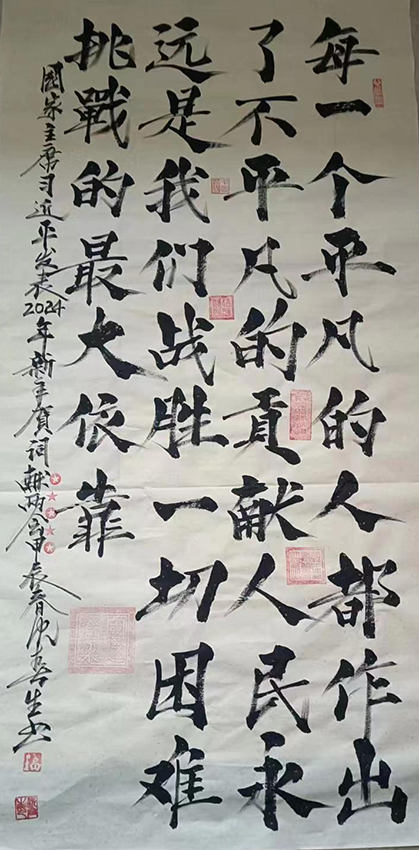 每一个平凡的人都作出
了不平凡的貢献人民永
远是我们战胜一切困难
挑戰的最大依靠
國家主席习近平发表2024年新年賀詞
甲辰春
生书